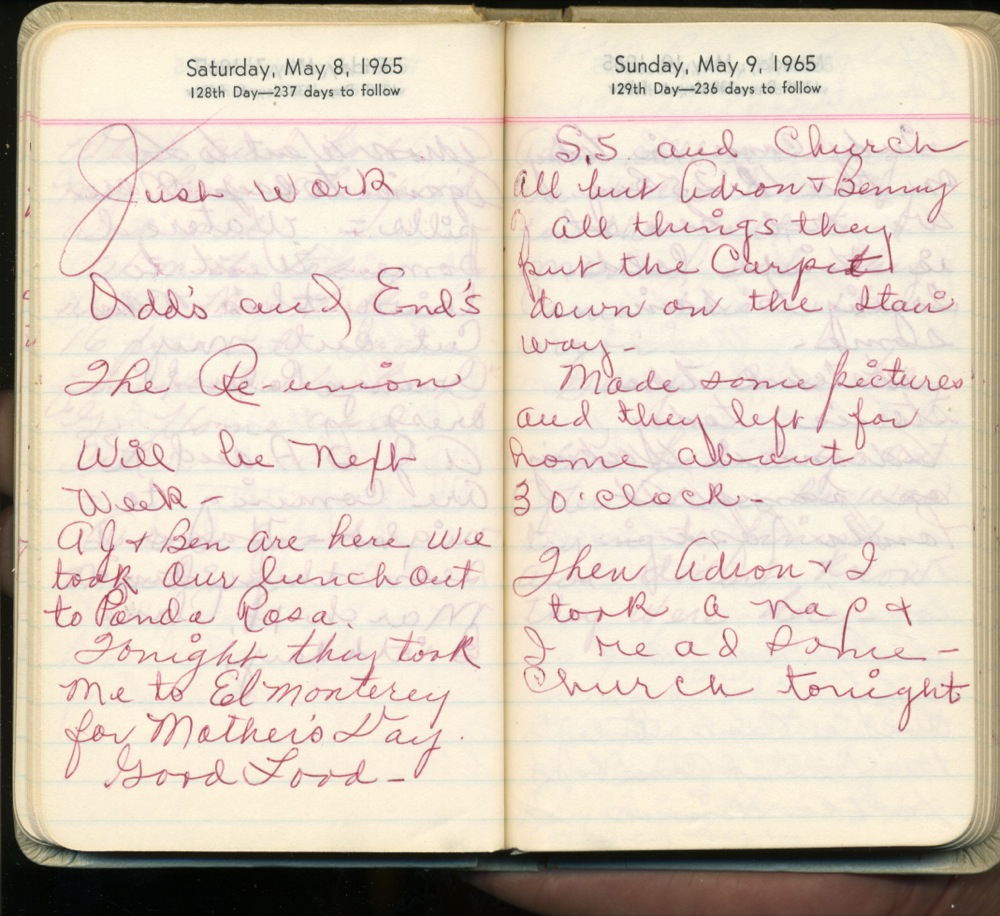 Saturday, May 8, 1965
128th Day—237 days to follow
Just Work
Odd's and End's
The Re-union
Will be Next
Week -
A J & Ben are here We
took Our lunch Out
to Ponda Rosa.
Tonight they took
me to El Monterey
for Mother's Day.
Good Food -
Sunday, May 9, 1965
129th Day—236 days to follow
S.S. and Church
All but Adron & Benny
of all things they
put the Carpet
down on the Stair
way -
Made some pictures
and they left for
home about
3 o'clock -
Then Adron & I
took a nap &
I read some -
Church tonight